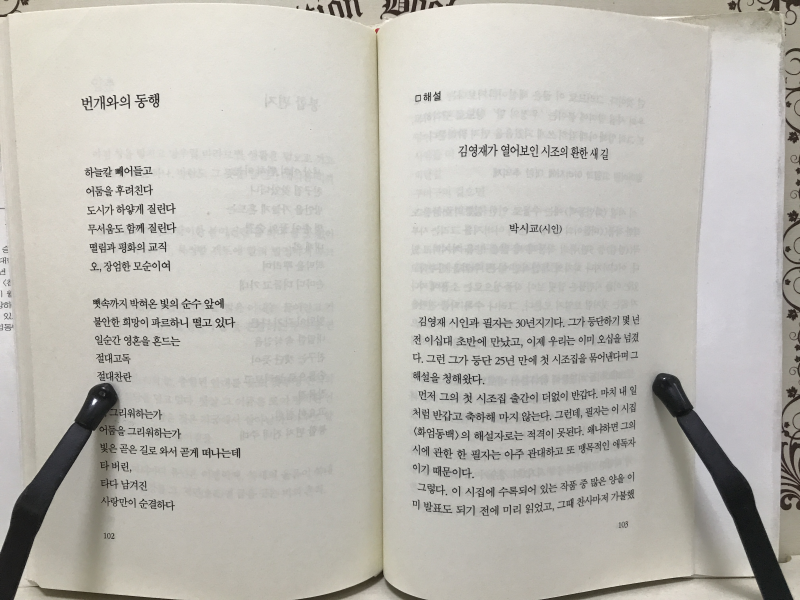 번개와의 동행
하늘칼 빼어들고
어둠을 후려친다
도시가 하얗게 질린다
무서움도 함께 질린다
떨림과 평화의 교직
오, 장엄한 모순이여
뼛속까지 박혀온 빛의 순수 앞에
불안한 희망이 파르하니 떨고 있다
일순간 영혼을 흔드는
절대고독
절대찬란
그리워하는가
어둠을 그리워하는가
빛은 곧은 길로 와서 곧게 떠나는데
타 버린,
타다 남겨진
사랑만이 순결하다
102
□ 해설
김영재가 열어보인 시조의 환한 새 길
박시교(시인)
김영재 시인과 필자는 30년지기다. 그가 등단하기 몇 년
전 이십대 초반에 만났고, 이제 우리는 이미 오십을 넘겼
다. 그런 그가 등단 25년 만에 첫 시조집을 묶어낸다며 그
해설을 청해왔다.
먼저 그의 첫 시조집 출간이 더없이 반갑다. 마치 내 일
처럼 반갑고 축하해 마지 않는다. 그런데, 필자는 이 시집
《화엄동백》의 해설자로는 적격이 못된다. 왜냐하면 그의
시에 관한 한 필자는 아주 관대하고 또 맹목적인 애독자
이기 때문이다.
그렇다. 이 시집에 수록되어 있는 작품 중 많은 양을 이
미 발표도 되기 전에 미리 읽었고, 그때 찬사마저 가불했
103